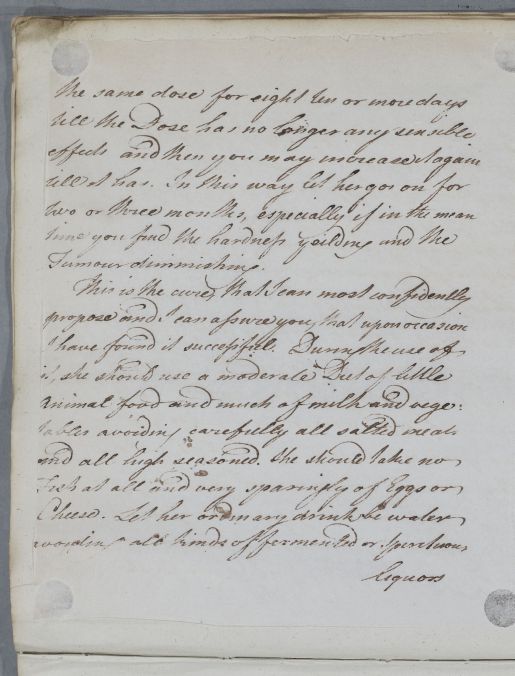 the same dose for eight ten or more days
till the Dose has no longer any sensible
effects and then you may increase it again
till it has. In this way let her go on for
two or three months, especially if in the mean
time you find the hardness yeilding and the
Tumour diminishing.
This is the cure, that I can most confidently
propose and I can assure you, that upon occasion
I have found it successfull. During the use of
it, she should use a moderate Diet of little
animal food and much of milk and vege:
tables avoiding carefully all salted meats
and all high seasoned. She should take no
Fish at all and very sparingly of Eggs or
Cheese. Let her ordinary drink be water
avoiding all kinds of fermented or spirituous
liquors